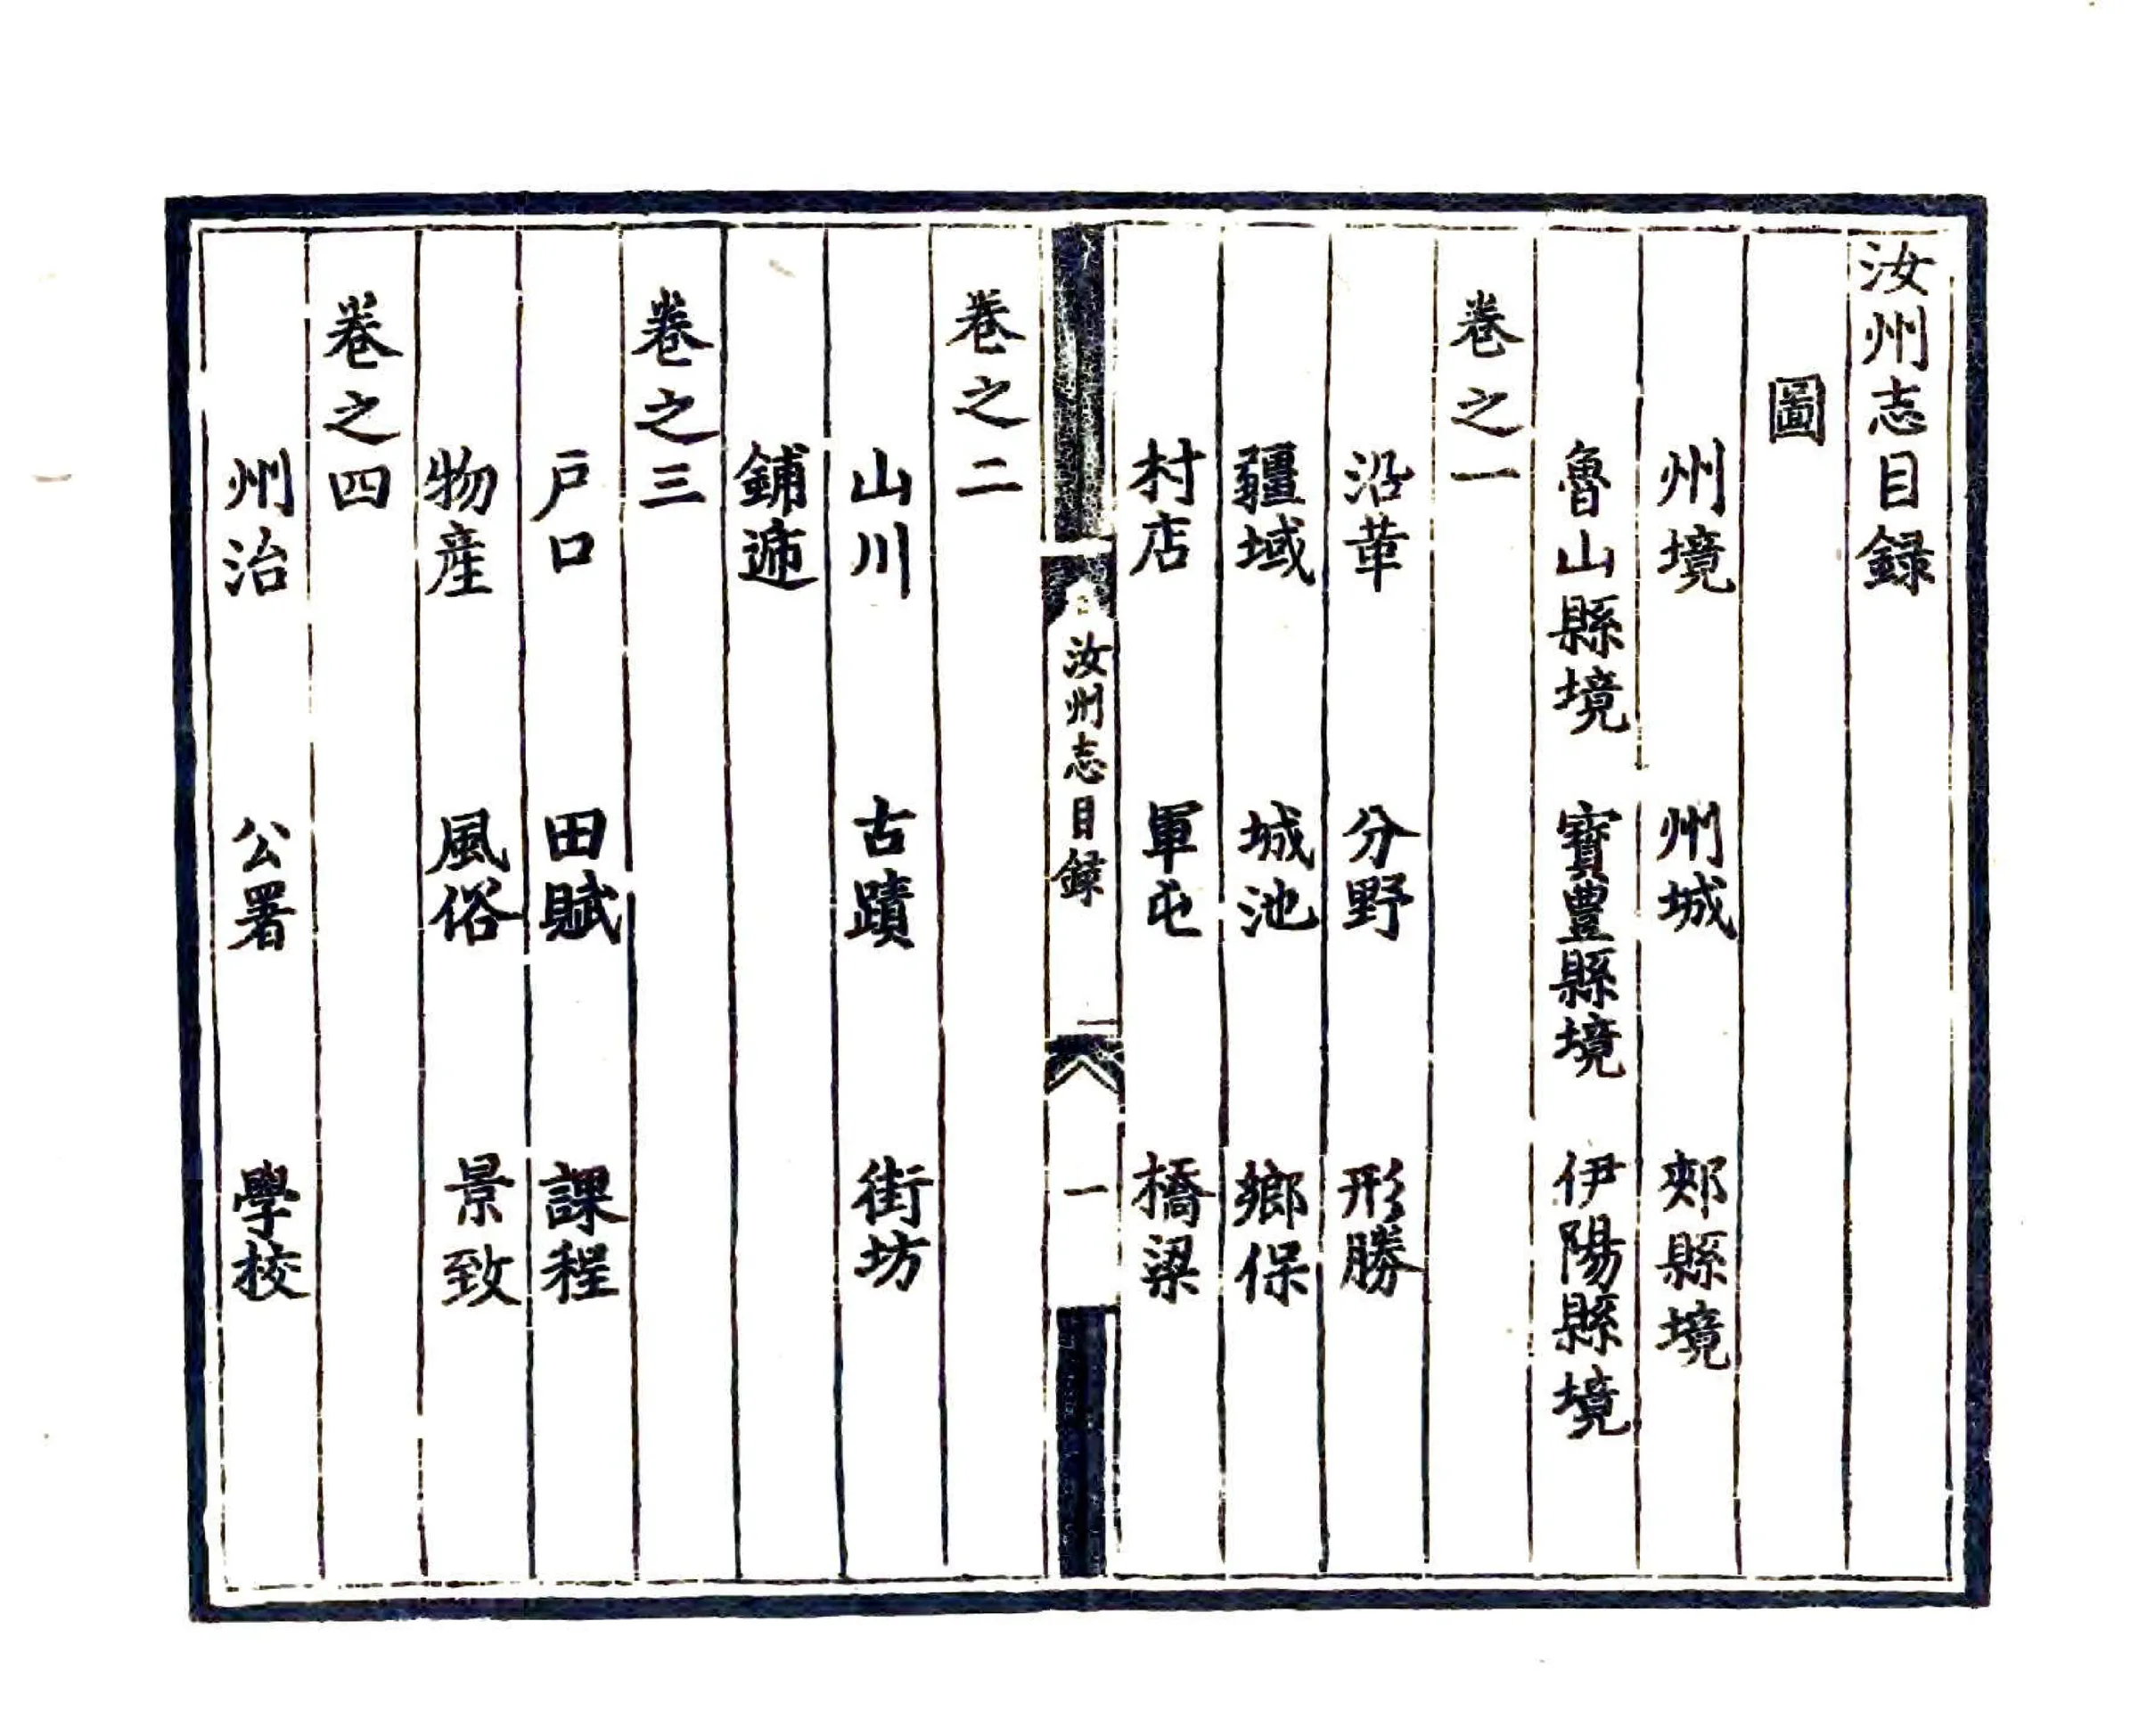 汝州志目録
圖
州境 州城 郟縣境
魯山縣境 寳豊縣境 伊陽縣境
卷之一
沿革 分野 形勝
疆域 城池 鄉保
村店 軍屯 橋梁
汝州志目録 一
卷之二
山川 古蹟 街坊
鋪遞
卷之三
戶口 田賦 課程
物産 風俗 景致
卷之四
州治 公署 學校